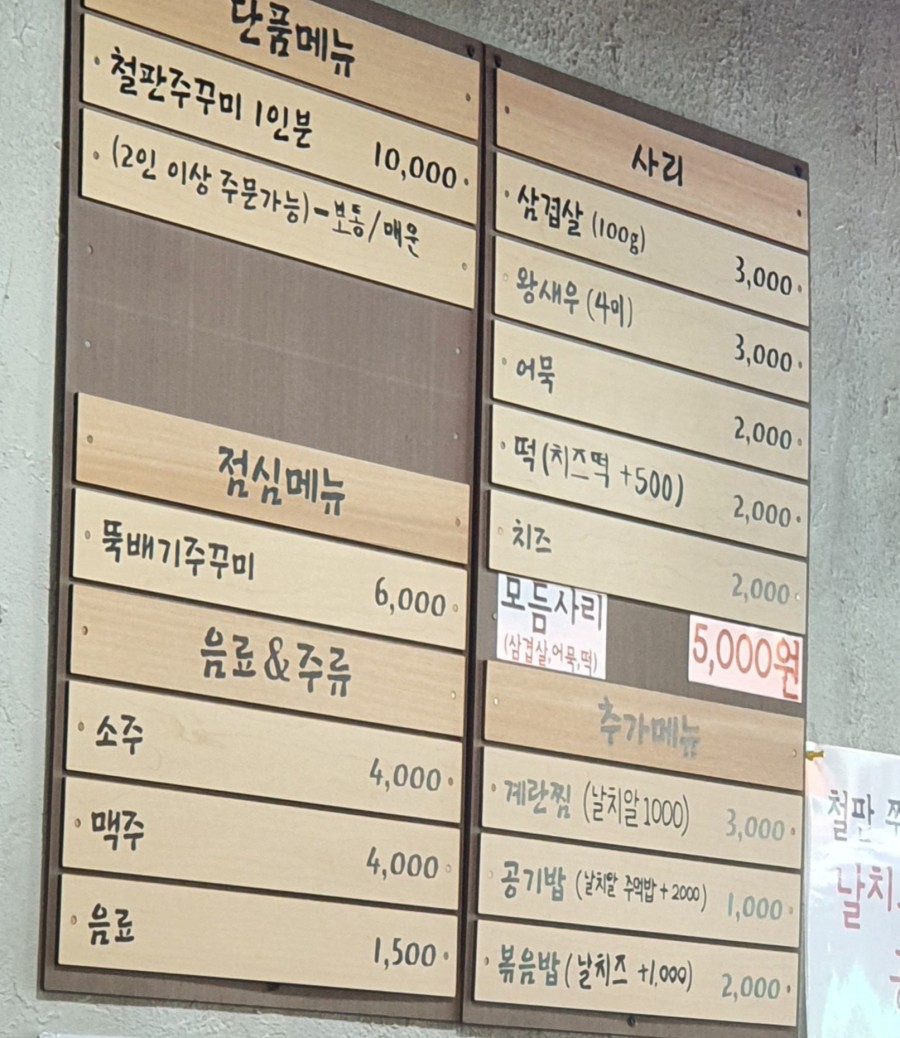 단품메뉴
철판주꾸미 1인분 10,000
(2인 이상 주문가능)-보통/매운
점심메뉴
뚝배기주꾸미 6,000
음료&주류
소주 4,000
맥주 4,000
음료 1,500
사리
삼겹살 (100g) 3,000
왕새우 (4미) 3,000
어묵 2,000
떡 (치즈떡 +500) 2,000
치즈 2,000
모듬사리 5,000원
(삼겹살,어묵,떡)
추가메뉴
계란찜 (날치알 1000) 3,000
공기밥 (날치알 주먹밥+2000) 1,000
볶음밥 (날치즈 +1,000) 2,000
철판
날치